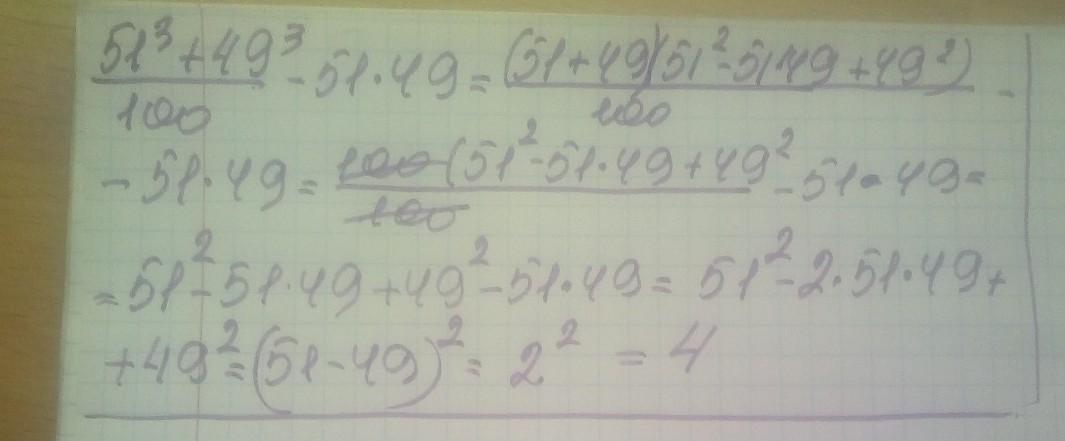 51³+49³/100 - 51·49 = (51+49)(51²-51·49+49²)/100 -
- 51·49 = 100(51²-51·49+49²/100 - 51·49=
=51²-51·49+49²-51·49= 51²-2·51·49+
+49²=(51-49)²= 2² = 4